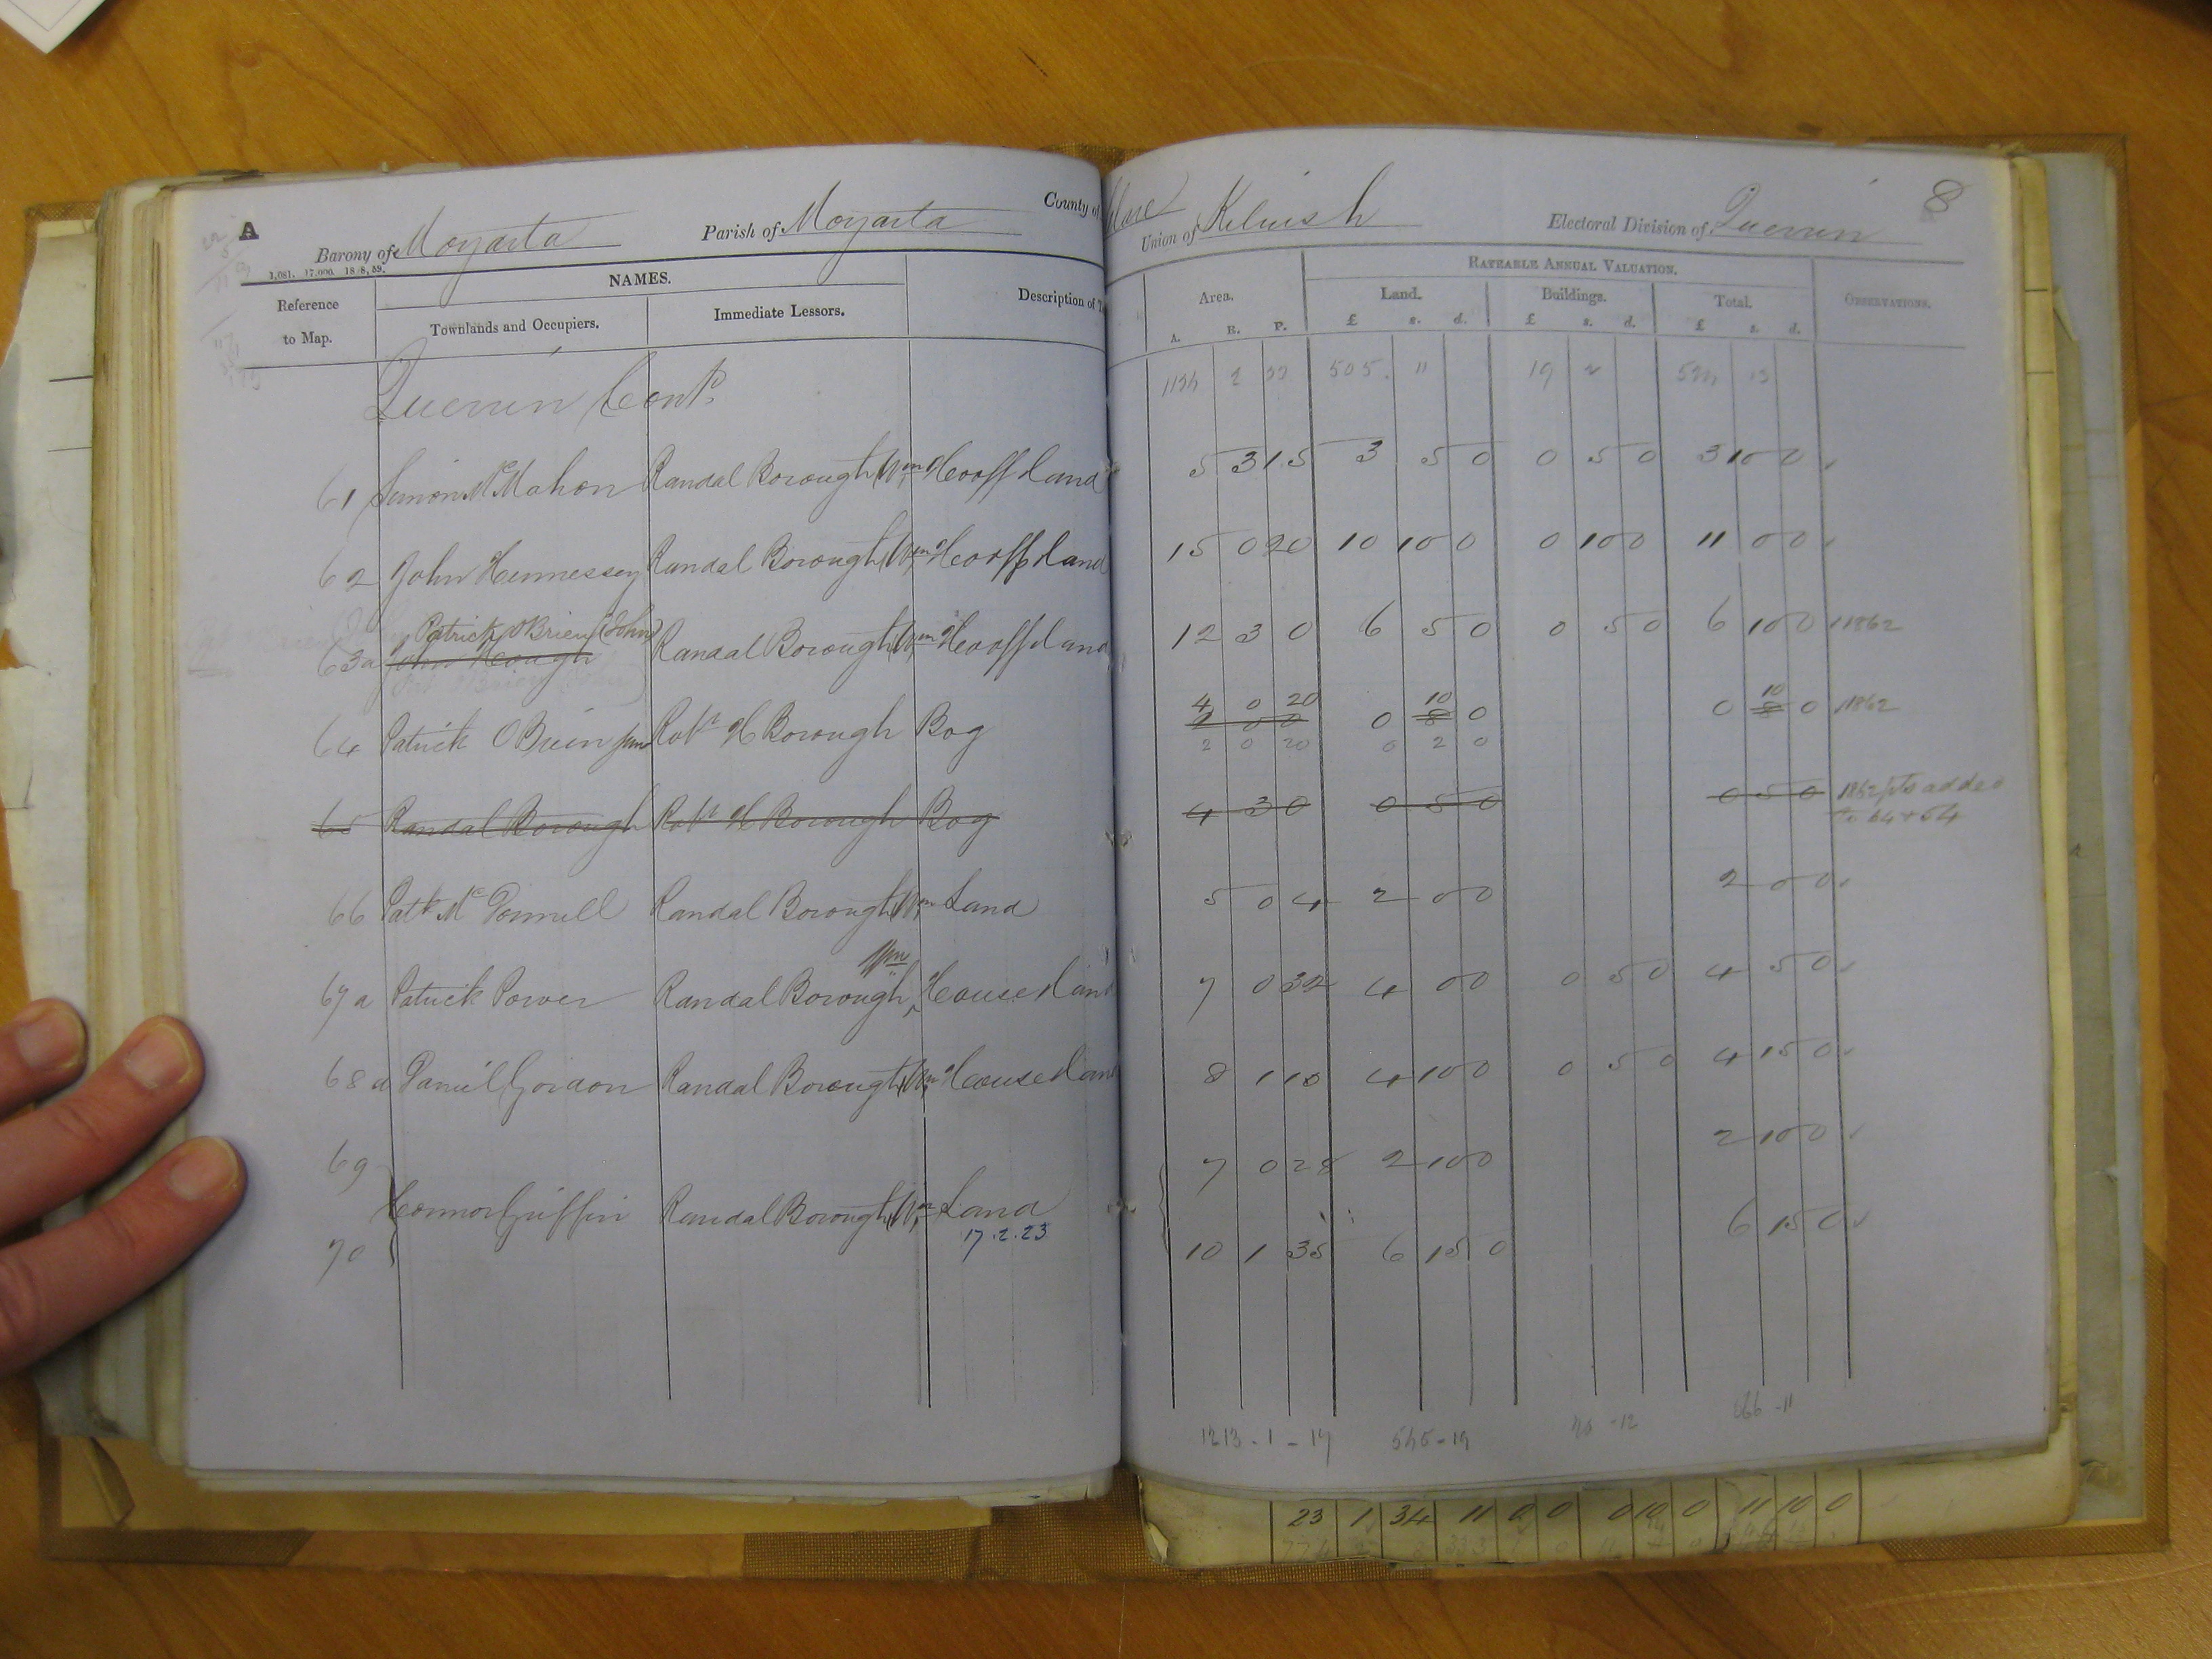 A
Barony of Moyarta Parish of Moyarta County of Clare Union of Kilrush Electoral Division of Querrin 8
1,081. 17,000. 18/8, 59.
Reference to Map. NAMES. Description of T Area. RATEABLE ANNUAL VALUATION. OBSERVATIONS.
Townlands and Occupiers. Immediate Lessors. Land. Buildings. Total.
A. R. P. £ s. d. £ s. d. £ s. d.
Querrin Cont^d. 505. 11 19
61 Simon McMahon Randal Borough Wm Ho off Land 5 3 15 3 5 0 0 5 0 3 10 0
62 John Hennessey Randal Borough Wm Ho off Land 15 0 20 10 10 0 0 10 0 11 0 0
Patrick O'Brien (John)
63 a John Keough Randal Borough Wm Ho off Land 12 3 0 6 5 0 0 5 0 6 10 0 1862
4 0 20 10 10
64 Patrick O'Brien Jun Robt H Borough Bog 2 0 0 0 8 0 0 8 0 1862
2 0 20 0 2 0
65 Randal Borough Robt H Borough Bog 4 3 0 0 5 0 0 5 0 1862 pts added
to 64 + 54
66 Patk McDonnell Randal Borough Wm Land 5 0 4 2 0 0 2 0 0
Wm
67 a Patrick Power Randal Borough House Land 7 0 32 4 0 0 0 5 0 4 5 0
68 a Daniel Gordon Randal Borough Wm House Land 8 1 10 4 10 0 0 5 0 4 15 0
69 7 0 28 2 10 0 2 10 0
Connor Griffin Randal Borough Wm Land
70 10 1 35 6 15 0 6 15 0
17.2.23
1213 - 1 - 17 545 - 19 20 - 12 566 - 11
23 1 34 11 0 0 0 10 0 11 10 0